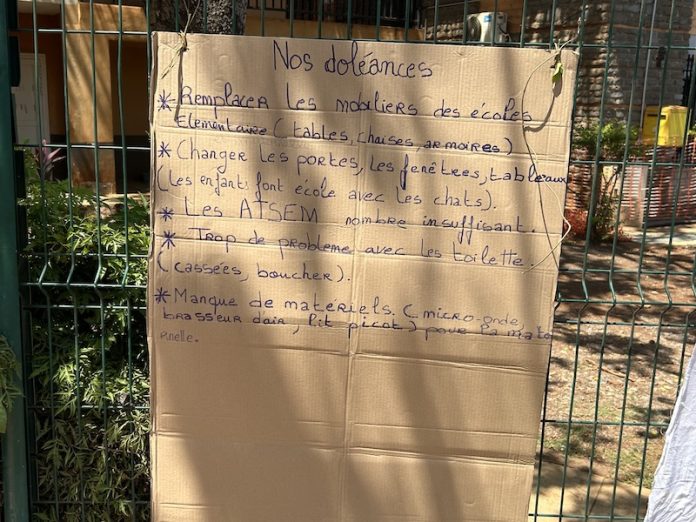 Nos doléances
* Remplacer les mobiliers des écoles
Elémentaire (tables, chaises, armoires)
* Changer les portes, les fenêtres, tableaux
(les enfants font école avec les chats).
* Les ATSEM nombre insuffisant.
* Trop de problème avec les toilette.
(cassées, boucher).
* Manque de matériels. (micro-onde,
brasseur d'air, lit picot) pour la mate
rnelle.